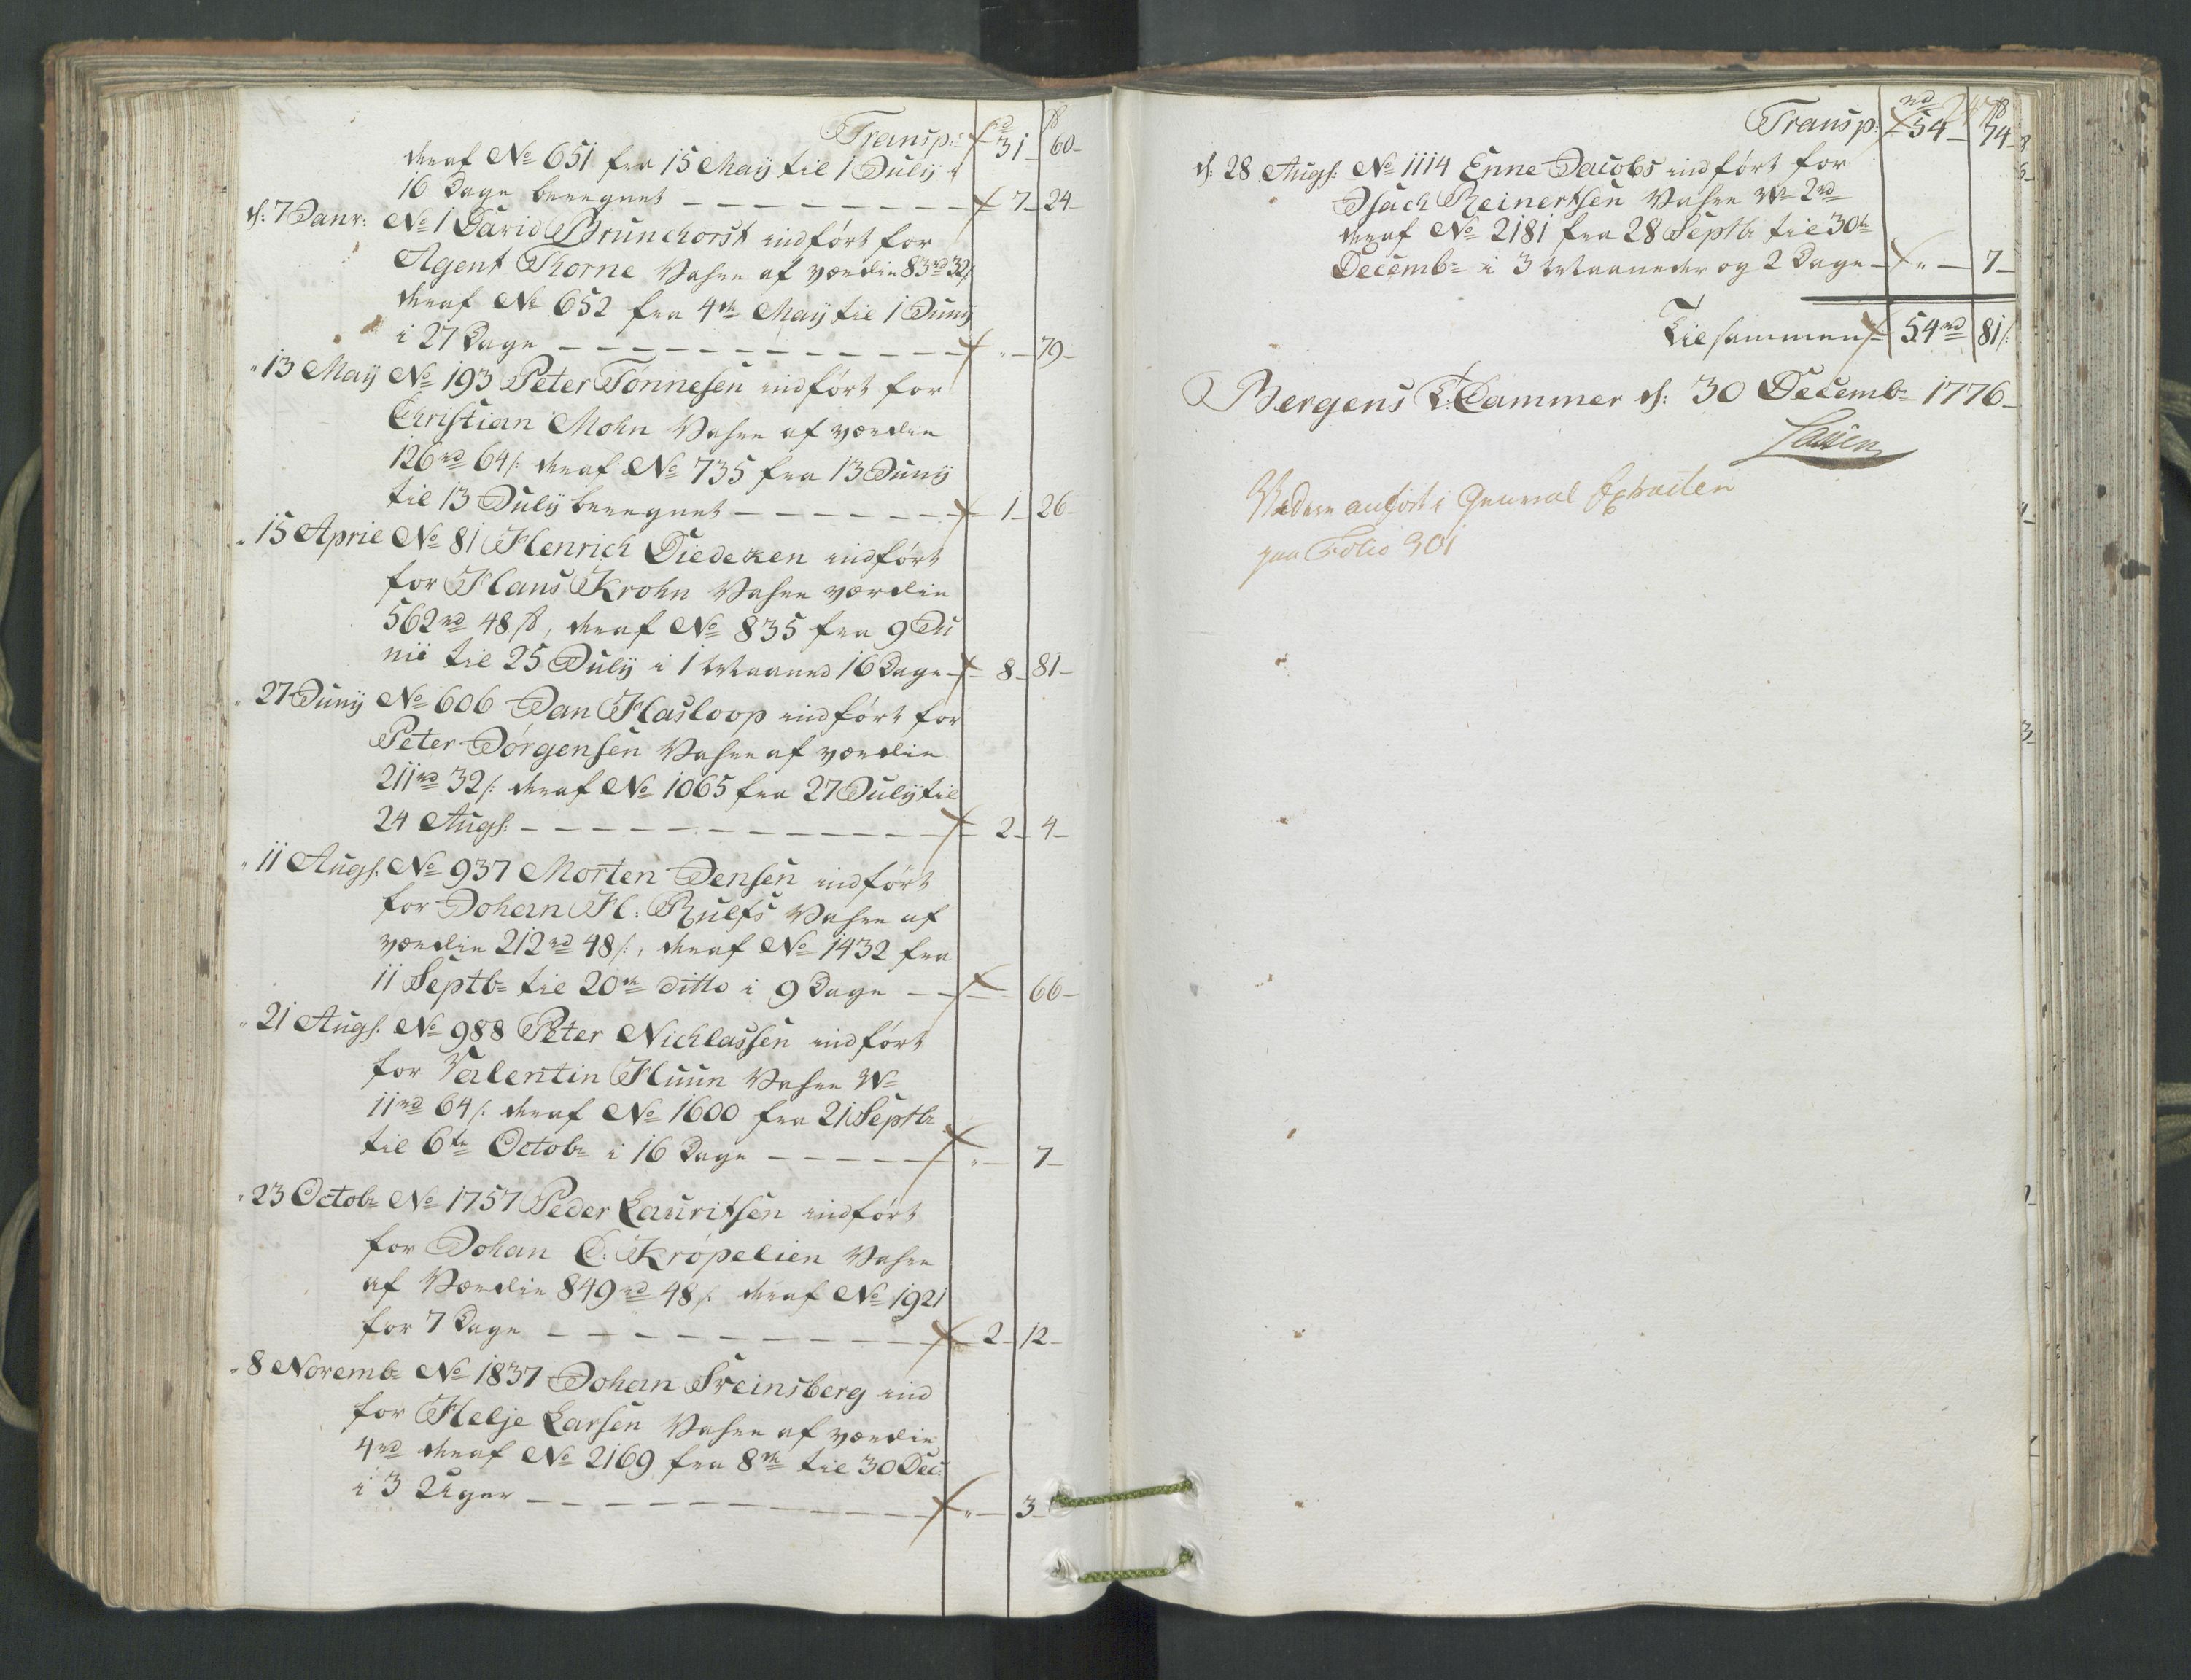 Transp: 31 60
deraf No 651 fra 15 Maÿ til 1 Julÿ i
16 Dage bereignet 7 24
d: 7 Janr: No 1 David Brunchorst indført for
Agent Thorne Vahre af værdie 83 rd 32 s:
deraf No 652 fra 4de Maÿ til 1 Junÿ
i 27 Dage " 79
" 13 Maÿ No 193 Peter Tønnesen indført for
Christian Mohn Vahre af værdie
126 rd 64 s: deraf No 735 fra 13 Junÿ
til 13 Julÿ bereignet 1 26
" 15 April No 81 Henrich Diedeken indført
for Hans Krohn Vahre værdie
562 rd 48 s, deraf No 835 fra 9 Ju
nii til 25 Julÿ i 1 Maaned 16 Dage 8 81
" 27 Junÿ No 606 Jan Hasloop indført for
Peter Jørgensen Vahre af værdie
211 rd 32 s: deraf No 1065 fra 27 Julÿ til
24 Augs: 2 4
" 11 Augs: No 937 Morten Jensen indført
for Johan H: Rulfs Vahre af
værdie 212 rd 48 s:, deraf No 1432 fra
11 Septb: til 20de ditto i 9 Dage 66
" 21 Augs: No 988 Peter Nichlassen indført
for Valentin Huun Vahre W=
11 rd 64 s: deraf No 1600 fra 21 Septbr
til 6te Octob: i 16 Dage " 7
" 23 Octob: No 1757 Peder Lauritsen indført
for Johan C: Krøpelien Vahre
af Værdie 849 rd 48 s: deraf No 1921
for 7 Dage 2 12
" 8 Novemb: No 1837 Johan Steinsberg ind
for Helje Larsen Vahre af værdie
4 rd deraf No 2169 fra 8de til 30 Dec:
i 3 Uger " 3
Transp: 54 74
d: 28 Augs: No 1114 Enne Jacobs indført for
Isach Reinertsen Vahre W= 2 rd
deraf No 2181 fra 28 Septbr til 30te
Decemb: i 3 Maaneder og 2 Dage " 7
Tilsammen 54 rd 81 s:
Bergens T: Cammer d: 30 Decemb: 1776
Videre anført i General Extracten
paa Folio 301